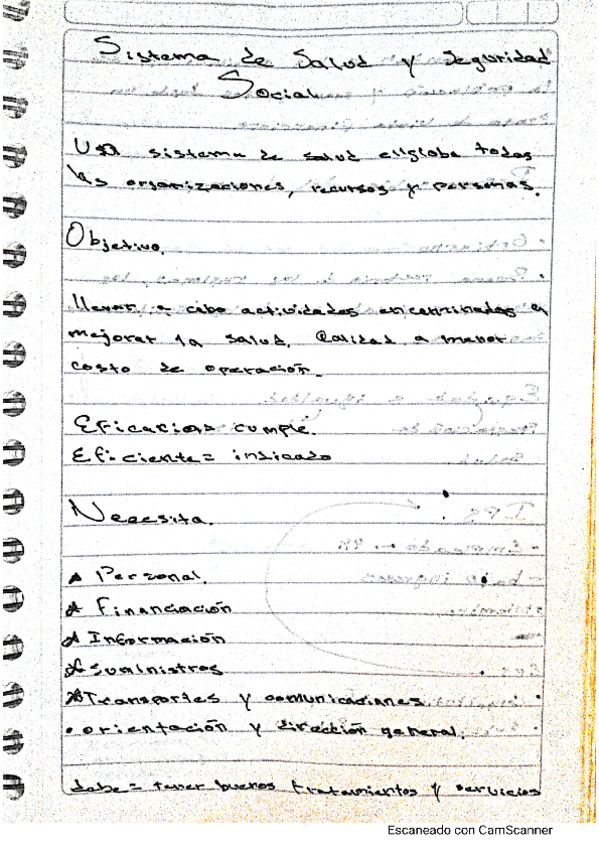 Sistema de Salud y Seguridad
Social
Un sistema de salud engloba todas
las organizaciones, recursos y personas.
Objetivo.
llevar a cabo actividades encaminadas a
mejorar la salud. Calidad a menor
costo de operación.
Eficacia = cumple.
Eficiente = indicado
Necesita.
* Personal.
* Financiación
* Información
* Suministros
* Transportes y comunicaciones
• orientación y dirección general.
debe = tener buenos tratamientos y servicios
Escaneado con CamScanner